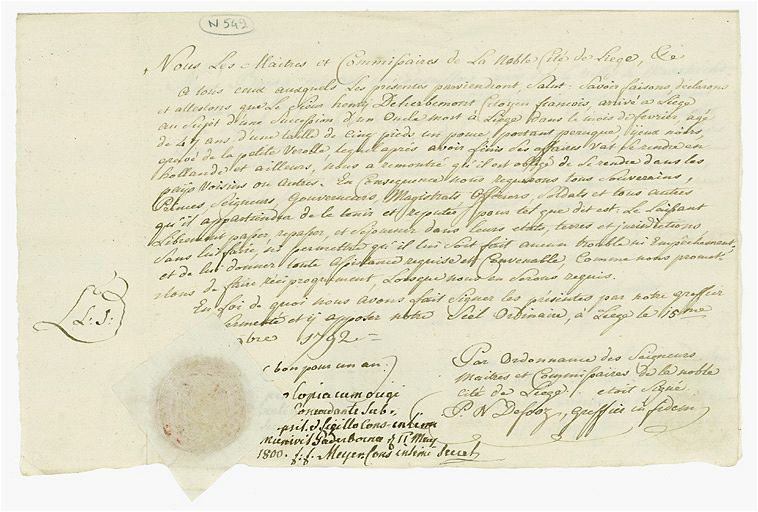 N 542
Nous Les Maitres et Commissaires de La Noble Cité de Liege, &c
a tous ceux auxquels Les presentes parviendront, Salut: Savoir faisons, declarons
et attestons que Le Sieur henry citoyen françois, arrivé a Liege
au Sujet d'une Succession d'un Oncle mort a Liege dans le mois de fevrier, agé
de 47 ans d'une taille de Cinq pieds un pouce, portant peruque, yeux noirs,
de la petite Verolle, lequel après avoir finis Ses affaires Vat Se rendre en
hollande et ailleurs, nous a remontré qu'il est obligé de Se rendre dans les
païs Voisins ou Autres. En Consequence nous requerons tous Souverains,
Princes Seigneurs, Gouverneurs, Magistrats Officiers, Soldats et tous autres
qu'il appartiendra de le tenir et reputer pour tel que dit est: Le Laissant
Librement passer repasser, et Sejourner dans leurs etats, terres et jurisdictions,
Sans lui faire, ni permettre qu'il lui Soit fait aucun trouble ni Empechement,
et de lui donner toute assistance requise et Convenable Comme nous promet-
tons de faire reciproquement, Lorsque nous en Serons requis.
En foi de quoi nous avons fait Signer les présentes par notre greffier
Sermenté et y apposer notre Scel Ordinaire, à Liege le 15me
bre 1792
L: S:
bon pour un an
Par Ordonnance des Seigneurs
Maitres et Commissaires de la noble
cité de Liege! etoit Signé
greffier in fidem
Copia cum
Concordante Sub
Sigillo Cons
Paderbornae 11 May
1800. Meyer Cons intimi Secret